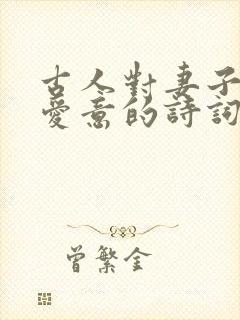 古人對妻子
愛意的詩詞
曾繁全